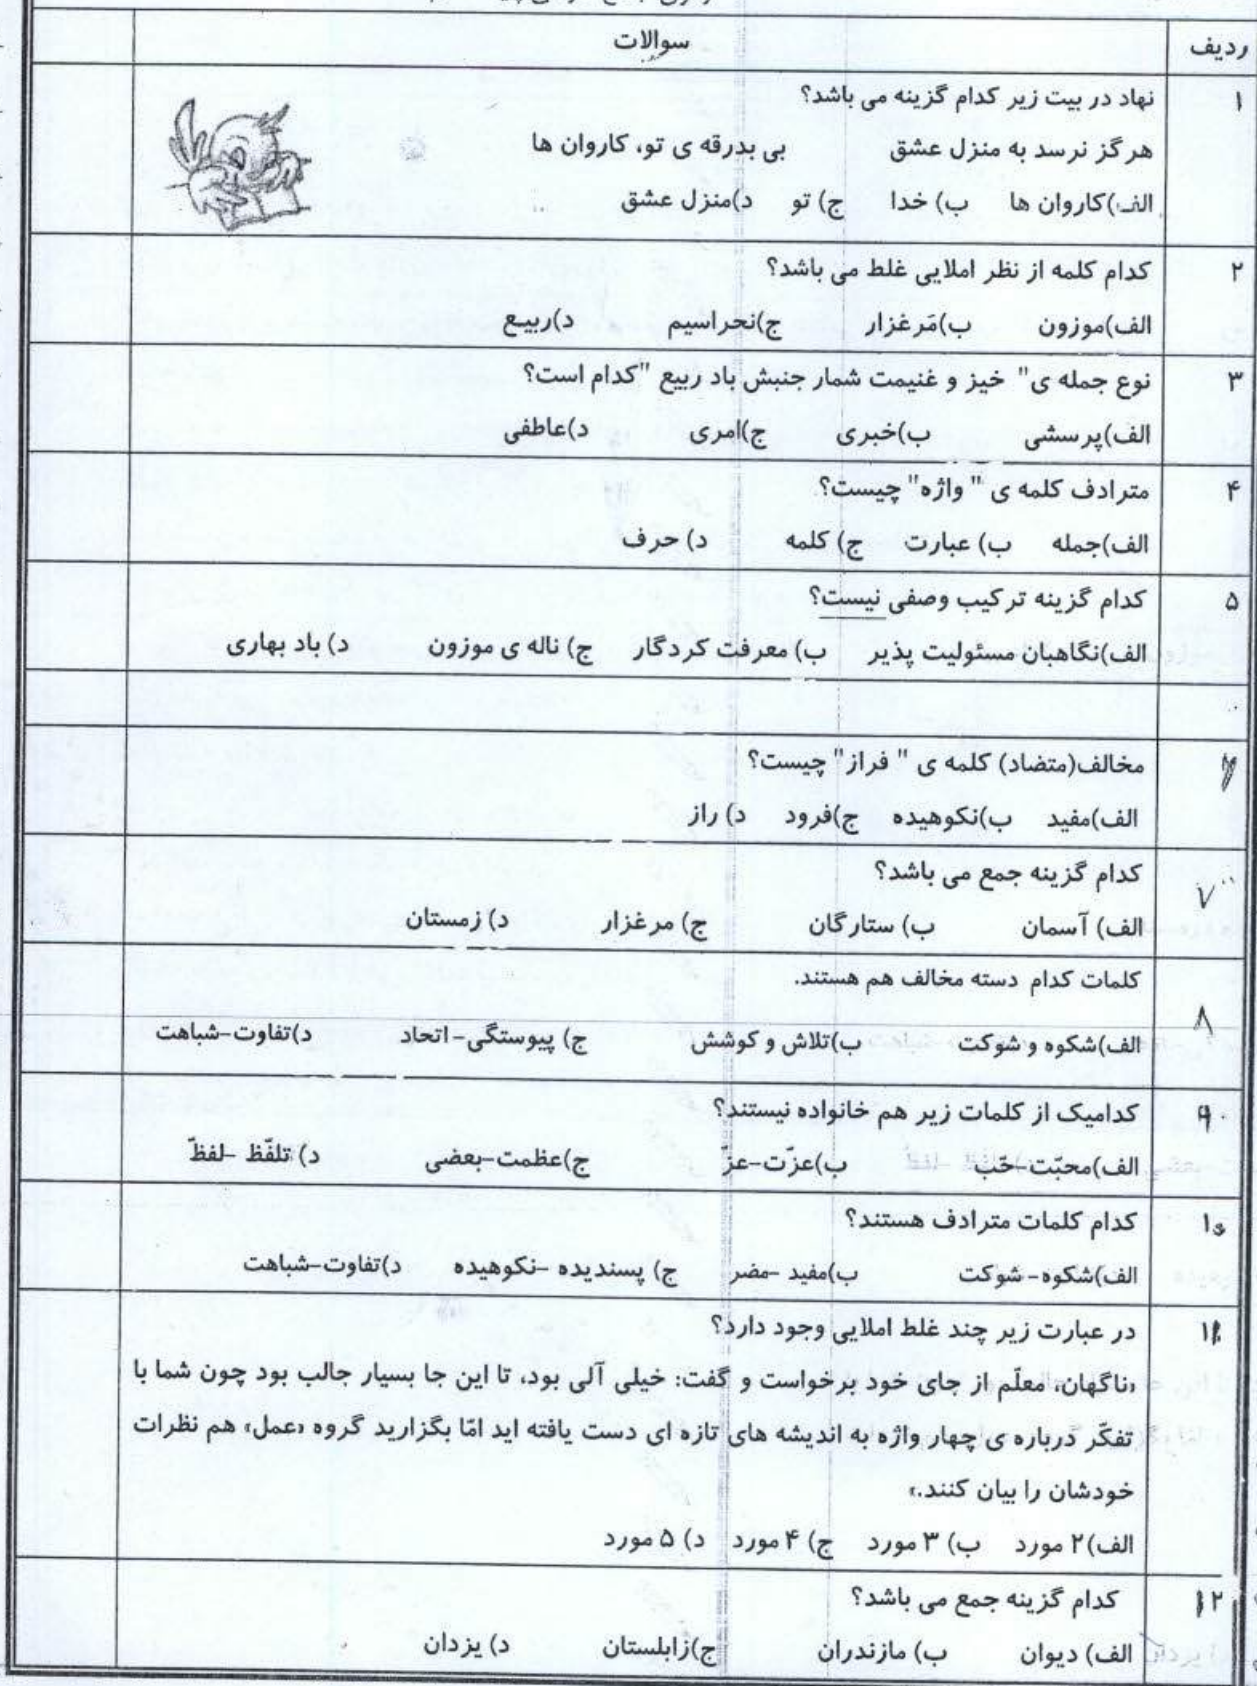 ردیف سوالات
۱ نهاد در بیت زیر کدام گزینه می باشد؟
هرگز نرسد به منزل عشق بی بدرقه ی تو، کاروان ها
الف)کاروان ها ب) خدا ج) تو د)منزل عشق
۲ کدام کلمه از نظر املایی غلط می باشد؟
الف)موزون ب)مَرغزار ج)نحراسیم د)ربیع
۳ نوع جمله ی" خیز و غنیمت شمار جنبش باد ربیع "کدام است؟
الف)پرسشی ب)خبری ج)امری د)عاطفی
۴ مترادف کلمه ی " واژه" چیست؟
الف)جمله ب) عبارت ج) کلمه د) حرف
۵ کدام گزینه ترکیب وصفی نیست؟
الف)نگاهبان مسئولیت پذیر ب) معرفت کردگار ج) ناله ی موزون د) باد بهاری
مخالف(متضاد) کلمه ی " فراز" چیست؟
الف)مفید ب)نکوهیده ج)فرود د) راز
۷ کدام گزینه جمع می باشد؟
الف) آسمان ب) ستارگان ج) مرغزار د) زمستان
کلمات کدام دسته مخالف هم هستند.
۸ الف)شکوه و شوکت ب)تلاش و کوشش ج) پیوستگی-اتحاد د)تفاوت-شباهت
۹ کدامیک از کلمات زیر هم خانواده نیستند؟
الف)محبّت-حّب ب)عزّت-عزّ ج)عظمت-بعضی د) تلفّظ -لفظّ
۱۰ کدام کلمات مترادف هستند؟
الف)شکوه-شوکت ب)مفید -مضر ج) پسندیده -نکوهیده د)تفاوت-شباهت
۱۱ در عبارت زیر چند غلط املایی وجود دارد؟
«ناگهان، معلّم از جای خود برخواست و گفت: خیلی آلی بود، تا این جا بسیار جالب بود چون شما با
تفکّر درباره ی چهار واژه به اندیشه های تازه ای دست یافته اید امّا بگزارید گروه «عمل» هم نظرات
خودشان را بیان کنند.»
الف)۲ مورد ب) ۳ مورد ج) ۴ مورد د) ۵ مورد
۱۲ کدام گزینه جمع می باشد؟
الف) دیوان ب) مازندران ج)زابلستان د) یزدان